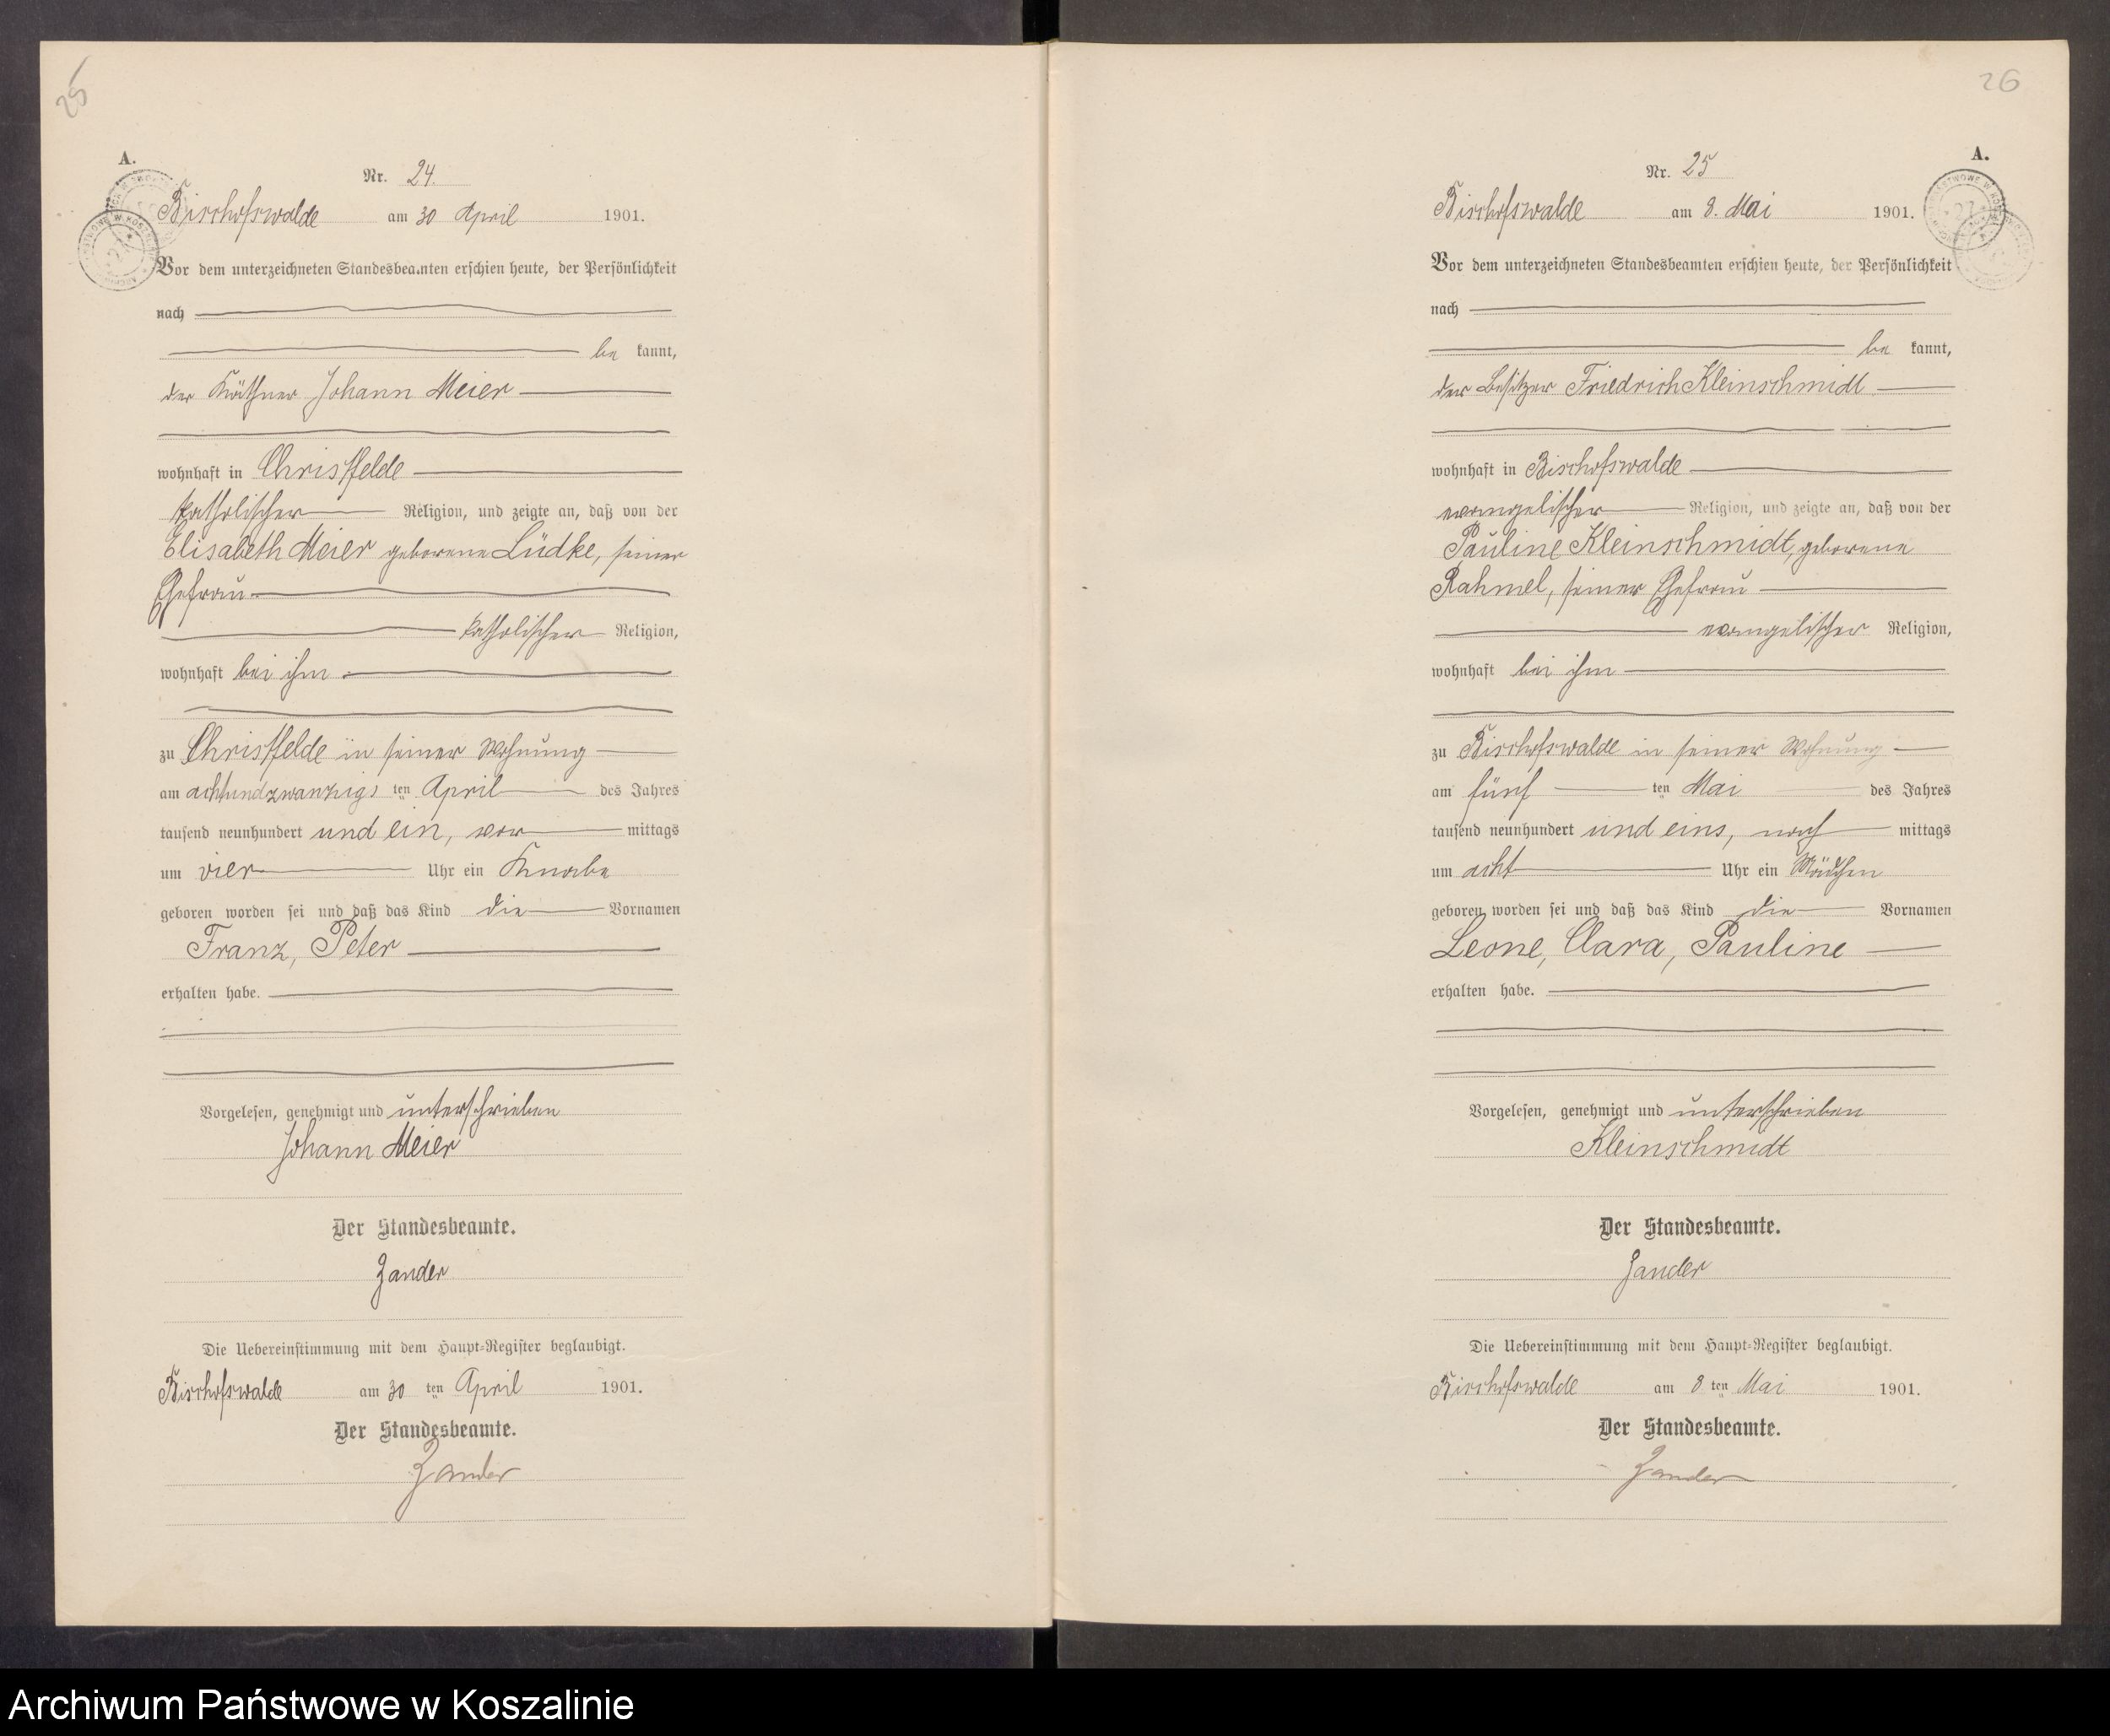 25
A.
Nr. 24.
Bischofswalde am 30 April 1901.
Vor dem unterzeichneten Standesbeamten erschien heute, der Persönlichkeit
nach
be kannt,
der Käthner Johann Meier
wohnhaft in Christfelde
katholischer Religion, und zeigte an, daß von der
Elisabeth Meier geborene Lüdke, seiner
Ehefrau
katholischer Religion,
wohnhaft bei ihm
zu Christfelde in seiner Wohnung
am achtundzwanzigs ten April des Jahres
tausend neunhundert und ein, vor mittags
um vier Uhr ein Knabe
geboren worden sei und daß das Kind die Vornamen
Franz, Peter
erhalten habe.
Vorgelesen, genehmigt und unterschrieben
Johann Meier
Der Standesbeamte.
Zander
Die Uebereinstimmung mit dem Haupt-Register beglaubigt.
Bischofswalde am 30 ten April 1901.
Der Standesbeamte.
Zander
26
A.
Nr. 25
Bischofswalde am 8. Mai 1901.
Vor dem unterzeichneten Standesbeamten erschien heute, der Persönlichkeit
nach
be kannt,
der Besitzer Friedrich Kleinschmidt
wohnhaft in Bischofswalde
evangelischer Religion, und zeigte an, daß von der
Pauline Kleinschmidt, geborene
Rahmel, seiner Ehefrau
evangelischer Religion,
wohnhaft bei ihm
zu Bischofswalde in seiner Wohnung
am fünf ten Mai des Jahres
tausend neunhundert und eins, nach mittags
um acht Uhr ein Mädchen
geboren worden sei und daß das Kind die Vornamen
Leone, Clara, Pauline
erhalten habe.
Vorgelesen, genehmigt und unterschrieben
Kleinschmidt
Der Standesbeamte.
Zander
Die Uebereinstimmung mit dem Haupt-Register beglaubigt.
Bischofswalde am 8 ten Mai 1901.
Der Standesbeamte.
Zander
Archiwum Państwowe w Koszalinie